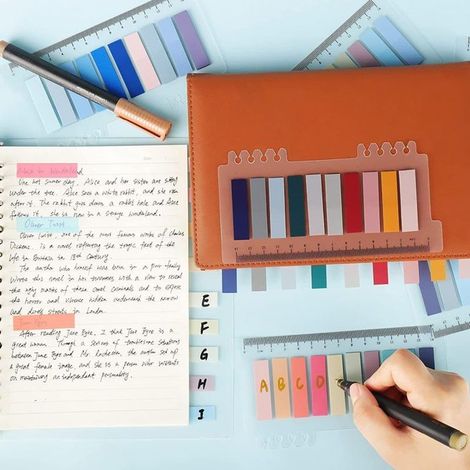 Alice in Wonderland
One hot summer day, Alice and her sister are
under the tree. Alice sees a white rabbit, and she
after it. The rabbit goes down a rabbit hole and Alice
follows it, she is now in a strange wonderland.
Oliver Twist
Oliver Twist, one of the most famous works of Charles
Dickens, is a novel reflecting the tragic fact of the
life in Britain in 18th century.
The author who himself was born in a poor family
wrote this novel in his twenties with a view to reveal
the ugly masks of those cruel criminals and to expose
the horror and violence hidden underneath the narrow
and dirty streets in London.
Jane Eyre
After reading Jane Eyre, I think that Jane Eyre is a
great woman. Through a series of troublesome situations
between Jane Eyre and Mr. Rochester, the author set up
a great female image, and she is a person who insists
on maintaining an independent personality.
E
F
G
H
I
A B C D